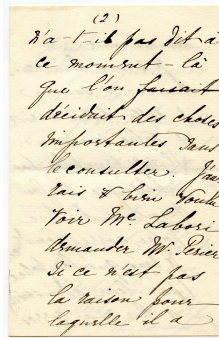 (2)
n'a-t-il pas dit à
ce moment-là
que l'on faisait
décidait des choses
importantes sans
le consulter. J'au
rais bien voulu
voir Mc. Labori
demander M. Perier
si ce n'est pas
la raison pour
laquelle il a